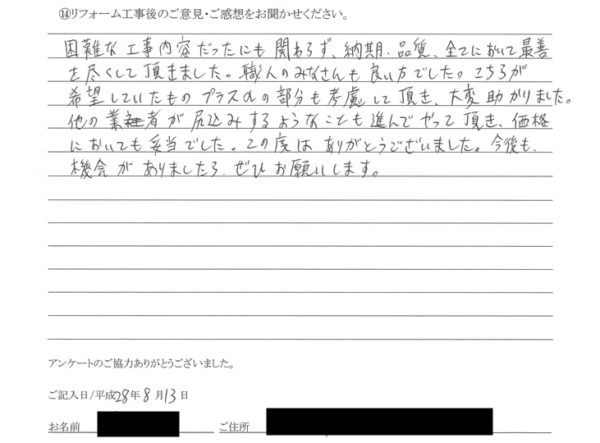 ⑭リフォーム工事後のご意見・ご感想をお聞かせください。
困難な工事内容だったにも関わらず、納期、品質、全てにおいて最善
を尽くして頂きました。職人のみなさんも良い方でした。こちらが
希望していたものプラスαの部分も考慮して頂き、大変助かりました。
他の業者が尻込みするようなことも進んでやって頂き、価格
においても妥当でした。この度はありがとうございました。今後も、
機会がありましたら、ぜひお願いします。
アンケートのご協力ありがとうございました。
ご記入日/平成28年8月13日
お名前 ご住所